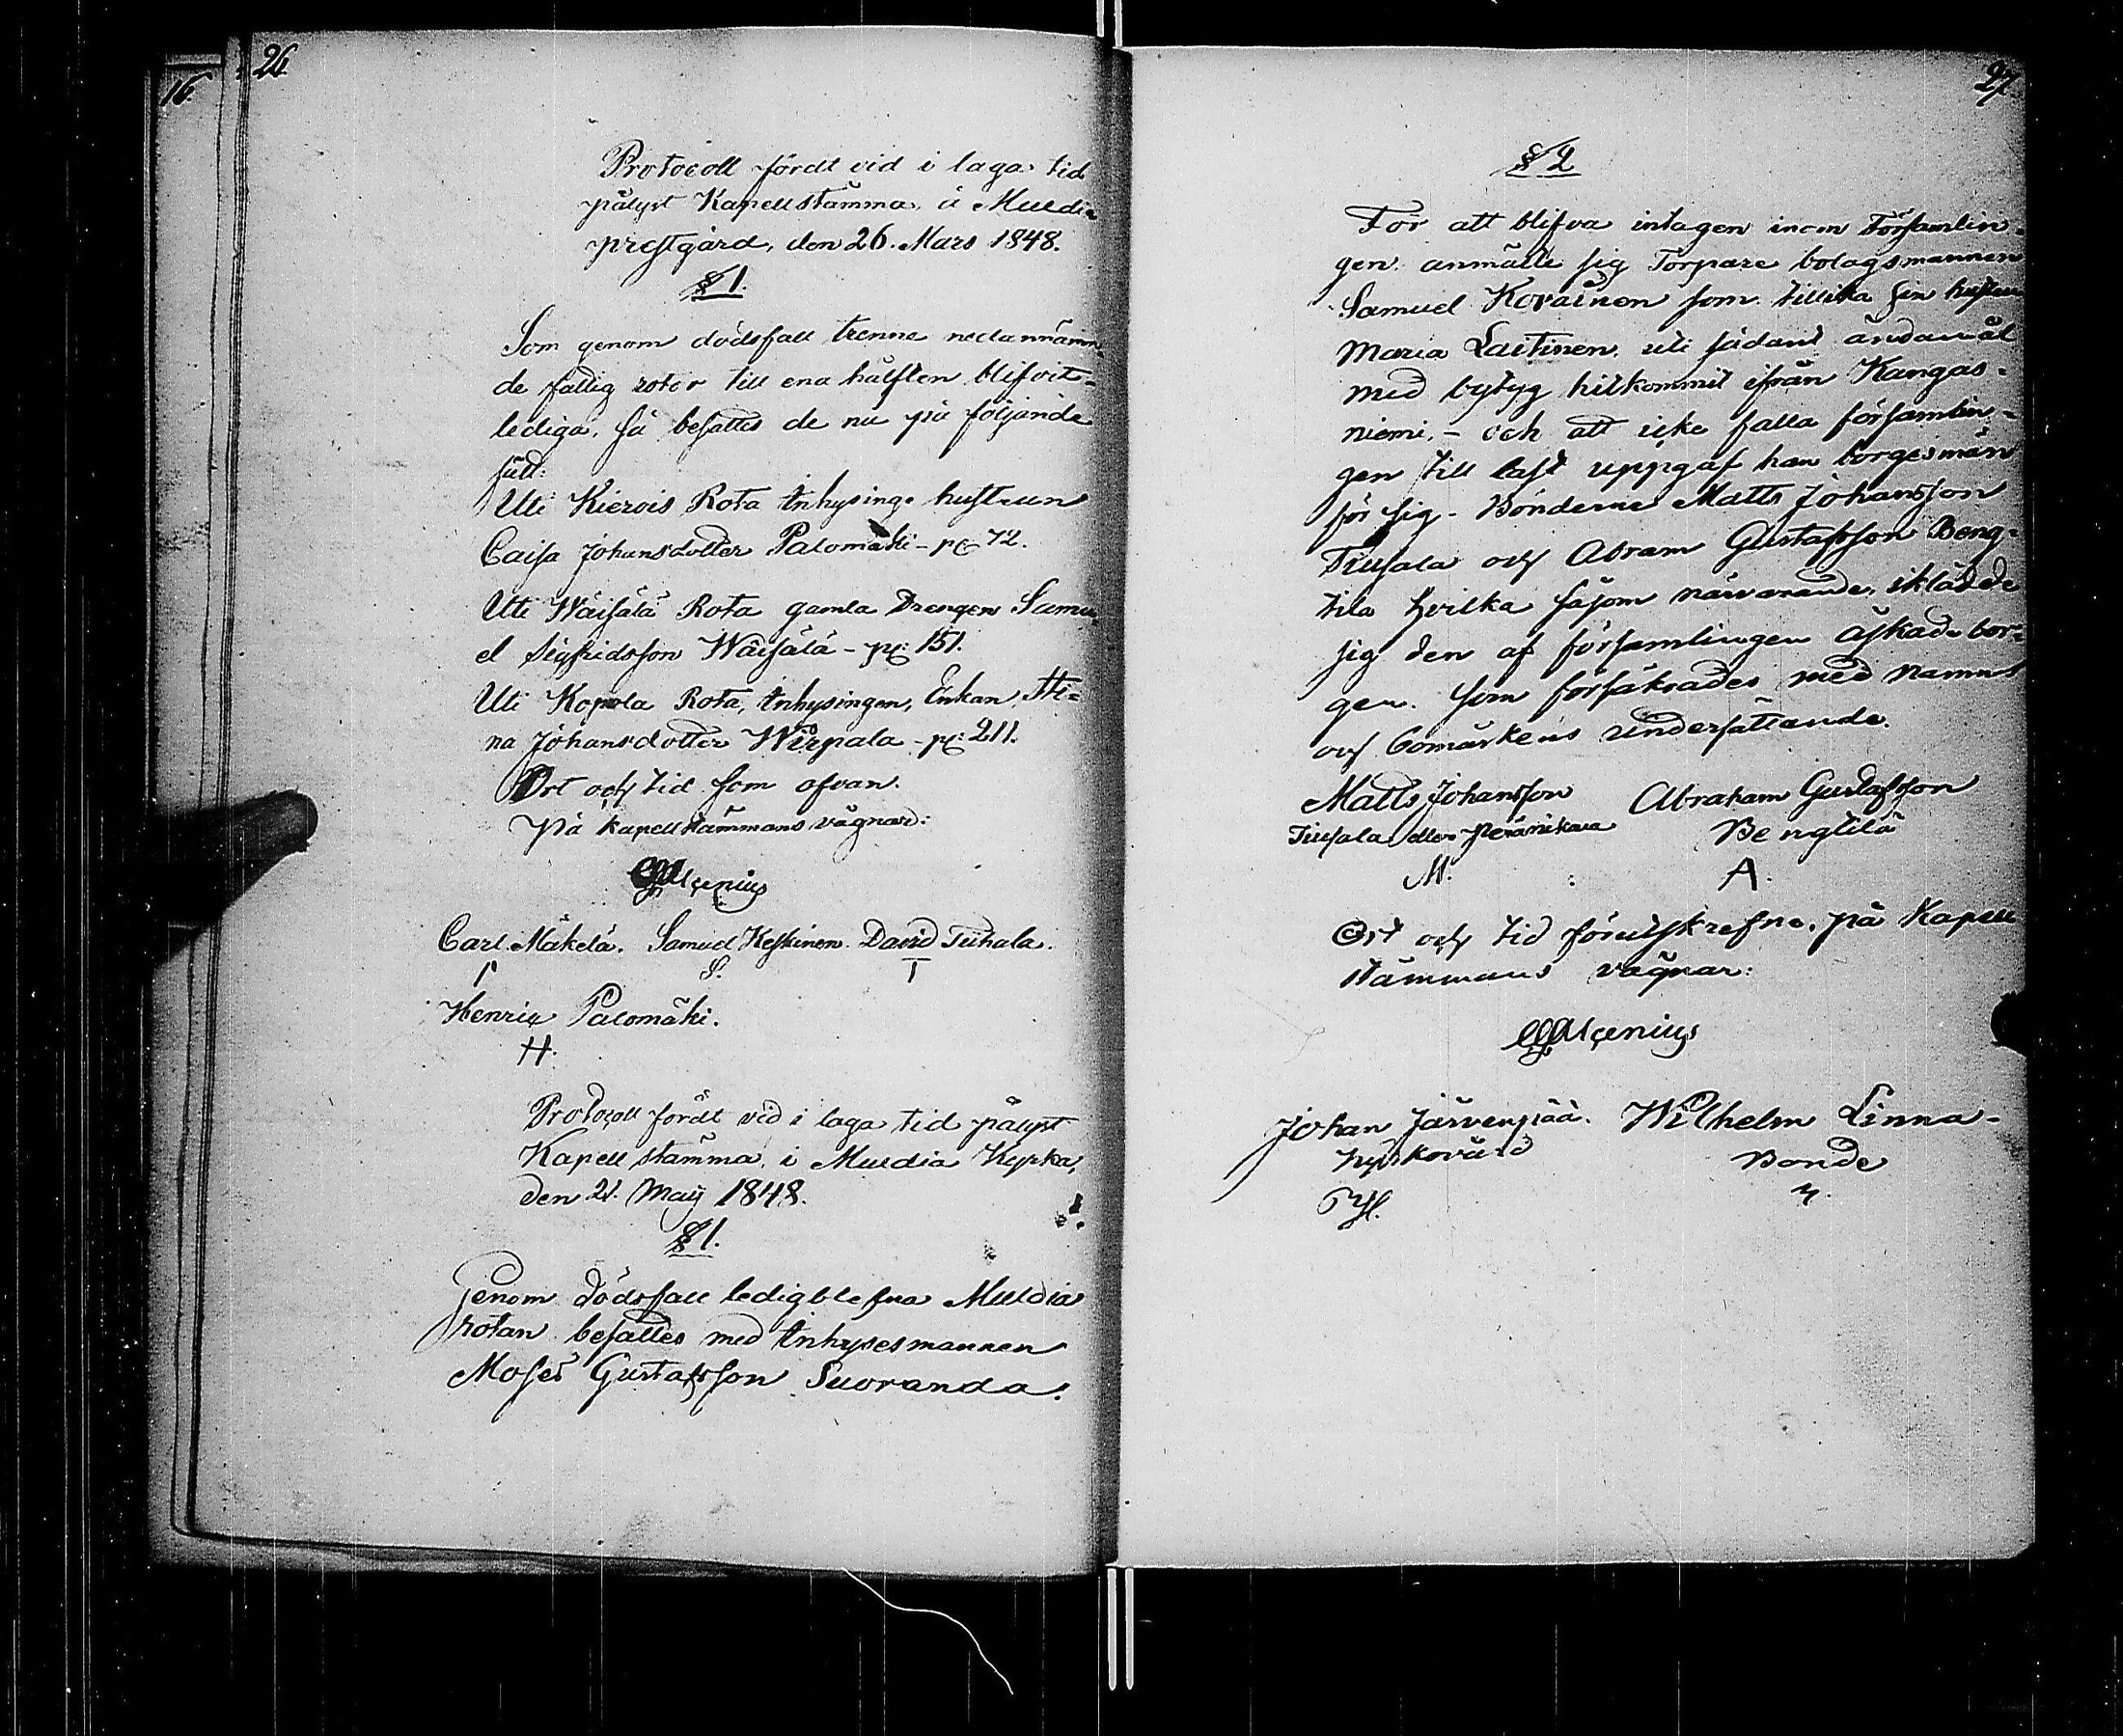 16.
26.
Protocoll fördt vid i laga tid
pålyst Kapellstämma, å Muldia
prestgård, den 26. Mars 1848.
§ 1.
Som genom dödsfall trenne nedannämn-
de fattig rotor till ena hälften blifvit
lediga, så besattes de nu på följande
sätt:
Uti Kiervis Rota Inhysings hustrun
Caisa Johansdotter Palomäki - p: 72.
Uti Wäisälä Rota gamla Drengen Samu-
el Sigfridsson Wäisälä - p: 151.
Uti Kopola Rota, Inhysingen, Enkan Sti-
na Johansdotter Wirpala - p: 211.
Ort och tid som ofvan.
På kapellstämmans vägnar:
Carl Mäkelä. Samuel Keskinen. David Tiihala.
S. T
Henric Palomäki.
H.
Protocoll fördt vid i laga tid pålyst
Kapell stämma, i Muldia Kyrka,
den 21. Maij 1848.
§ 1.
Genom dödsfall ledigblefna Muldia
rotan besattes med Inhysesmannen
Moses Gustafsson Suoranda.
27
§ 2
För att blifva intagen inom Församlin-
gen anmälte sig Torpare bolagsmannen
Samuel Kovainen som tillika sin hustru
Maria Laitinen, uti sådant ändamål
med bytyg hitkommit ifrån Kangas-
niemi, - och att icke falla församlin-
gen till last uppgaf han borgesmän
för sig - Bönderne Matts Johansson
Tiusala och Abram Gustafsson Beng-
tila hvilka såsom närvarande, iklädde
sig den af församlingen äskade bor-
gen. som försäkrades med namns
och bomärkens undersättande.
Matts Johansson Abraham Gustafsson
Tiusala eller Peränikara Bengtilä
M. A.
Ort och tid förutskrefne, på Kapell
stämmans vägnar:
Johan Järvenpää. Wilhelm Linna-
Kyrkovärd Bonde